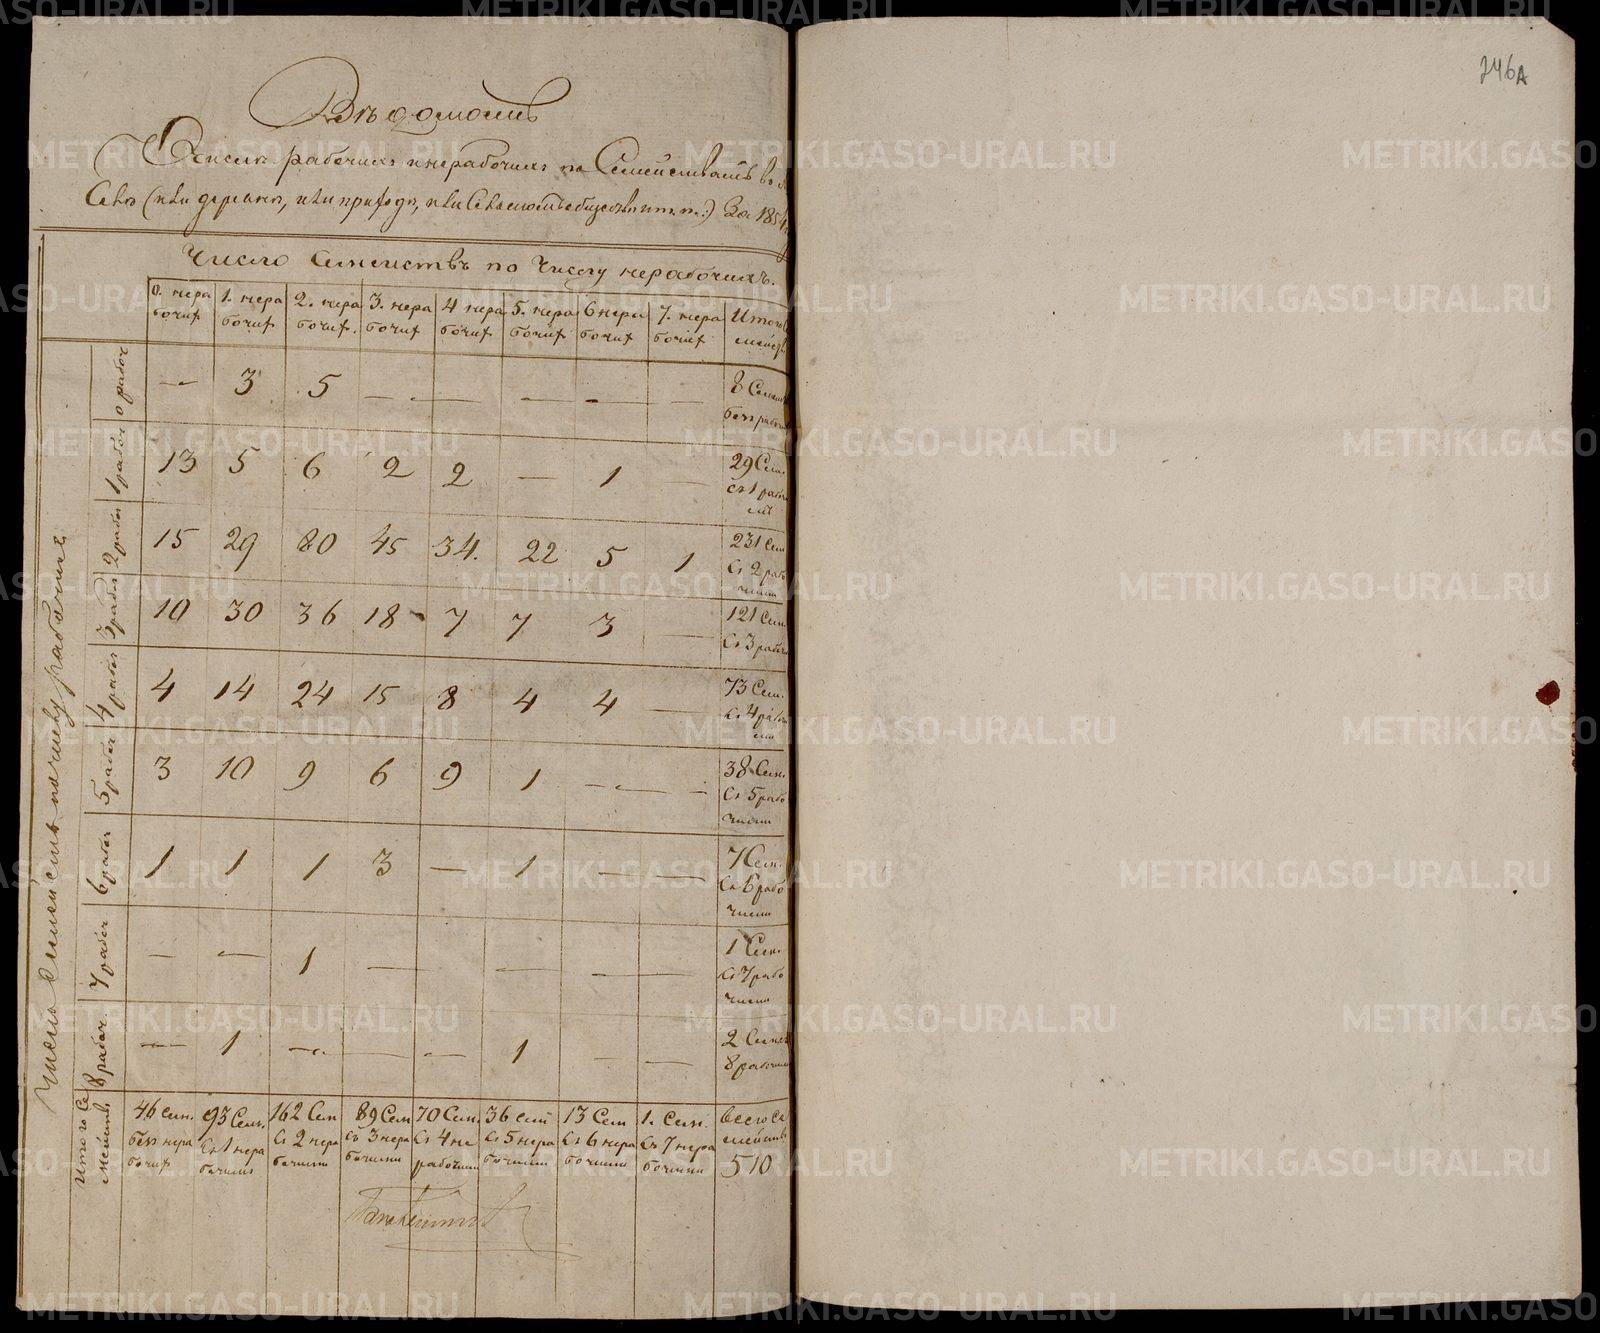 246А
Вѣдомость
О числѣ рабочихъ и нерабочихъ по Семействамъ въ
Селѣ (или деревнѣ, или приходѣ, или Сельскомъ обществѣ и т. п.) За 185
Число Семействъ по Числу нерабочихъ.
0. нера бочих 1. нера бочих 2. нера бочих. 3. нера бочих 4 нера бочих 5. нера бочих 6 нера бочих 7. нера бочих Итого
Число Семействъ по числу рабочихъ
0 рабоч — 3 5 — — — — — 8 Семей без рабочи
1 рабоч 13 5 6 2 2 — 1 — 29 Сем. съ 1 рабочи мъ
2 рабоч 15 29 80 45 34. 22 5 1 231 Сем Съ 2 рабо чими
3 рабоч 10 30 36 18 7 7 3 — 121 Сем. Съ 3 рабочи
4 рабоч 4 14 24 15 8 4 4 — 73 Сем. Съ 4 рабочи ми
5 рабоч 3 10 9 6 9 1 — — 38 Сем. Съ 5 рабо чими
6 рабоч 1 1 1 3 — 1 — — 7 Сем. Съ 6 рабо чими
7 рабоч — — 1 — — — — 1 Сем. Съ 7 рабо чими
8 рабоч. — 1 — — — 1 — — 2 Семей 8 рабочими
Итого Се мействъ 46 сем. без нера бочих 93 Сем. Съ 1 нера бочимъ 162 Сем Съ 2 нера бочими 89 Сем съ 3 нера бочими 70 Сем. Съ 4 не рабочими 36 сем Съ 5 нера бочими 13 Сем Съ 6 нера бочими 1. Сем. Съ 7 нера бочими всего Се мействъ 510
METRIKI.GASO-URAL.RU